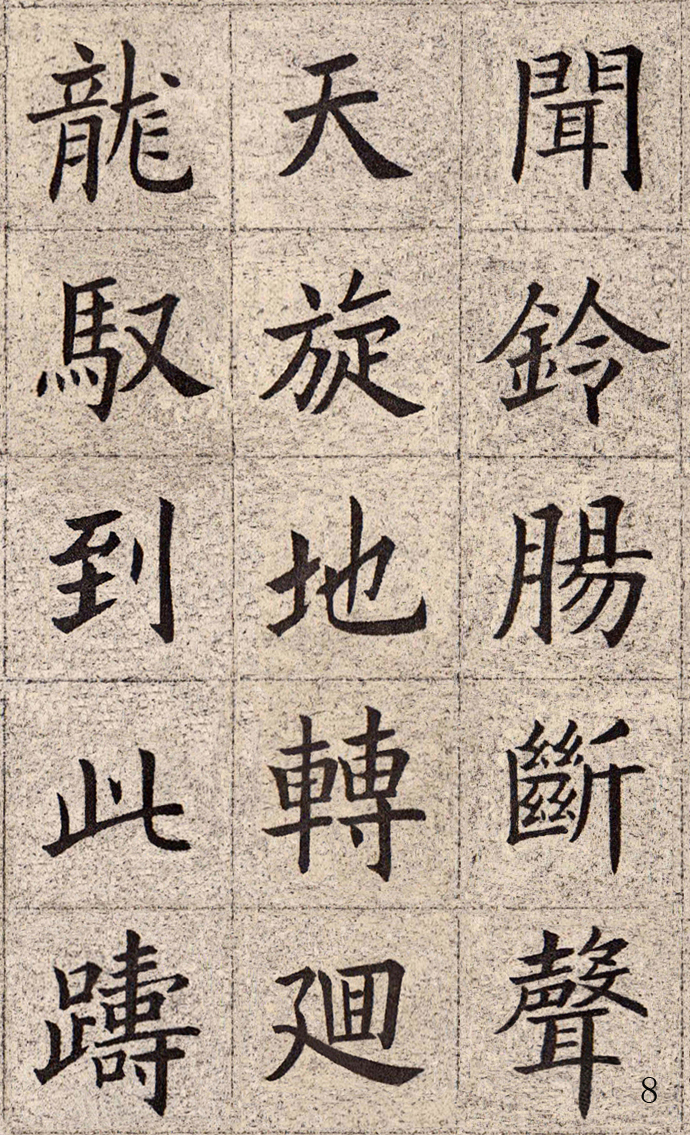 聞鈴腸斷聲
天旋地轉迴
龍馭到此躊
8